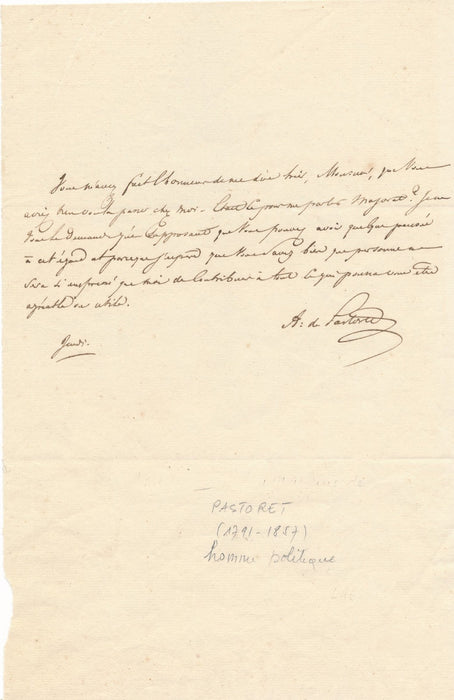 Vous m'avez fait l'honneur de me dire hier, Monsieur, que vous
aviez bien voulu passer chez moi. Etait-ce pour me parler ? Je ne
vous le demande que supposant que vous pouvez avoir quelque pensée
à cet égard et parceque j'espère que vous savez bien que personne ne
sera si empressé que moi de contribuer à tout ce qui pourra vous être
agréable ou utile.
A: de Pastoret
Jeudi.
PASTORET
(1791-1857)
homme politique